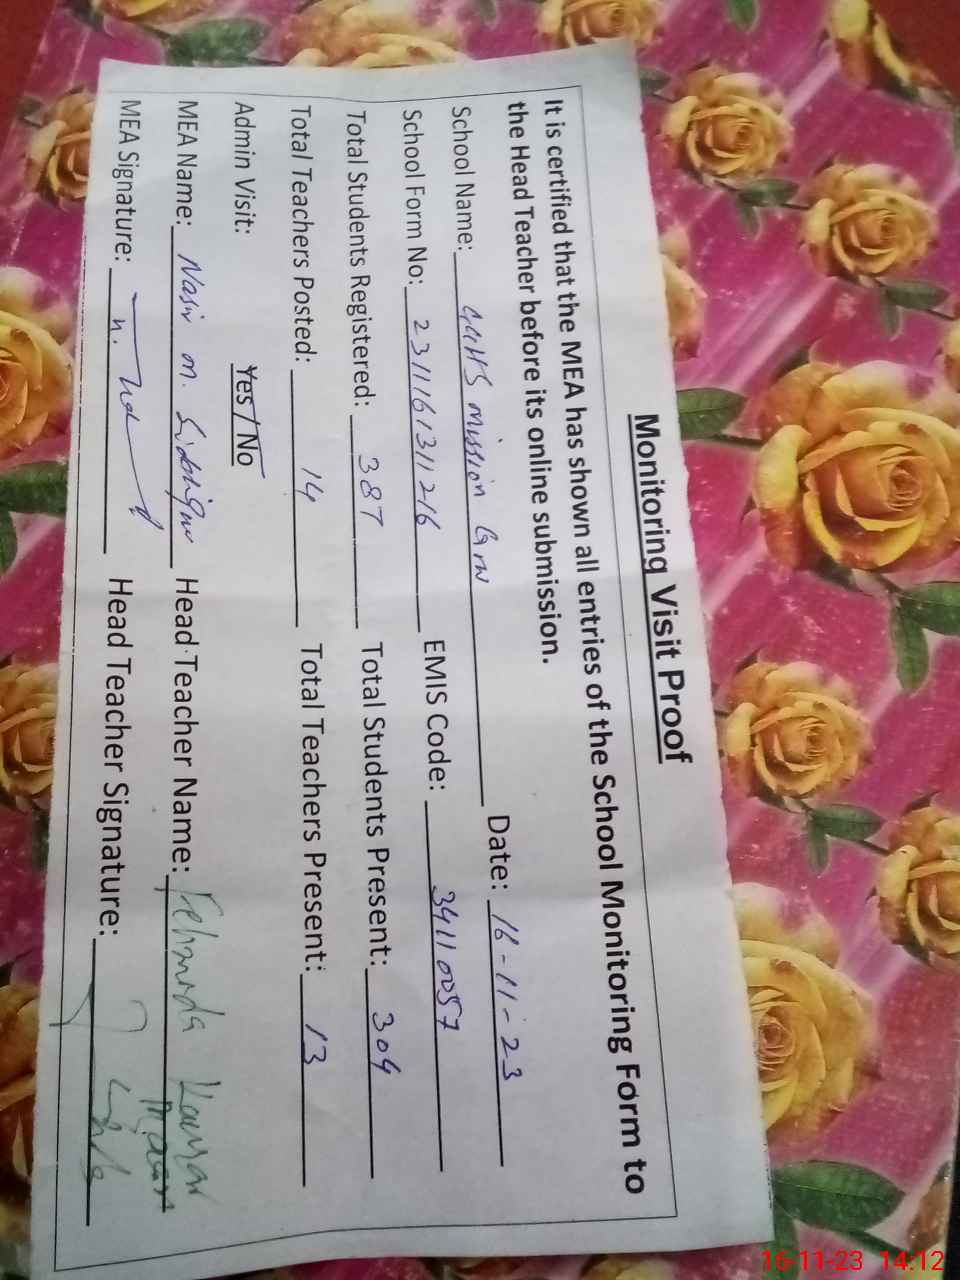 Monitoring Visit Proof
It is certified that the MEA has shown all entries of the School Monitoring Form to
the Head Teacher before its online submission.
School Name: GGHS mission Grw Date: 16-11-23
School Form No: 2311161311216 EMIS Code: 34110057
Total Students Registered: 387 Total Students Present: 304
Total Teachers Posted: 14 Total Teachers Present: 13
Admin Visit: Yes / No
MEA Name: Nasir m. Head Teacher Name: Fehmida Kausar
MEA Signature: Head Teacher Signature:
16-11-23 14:12